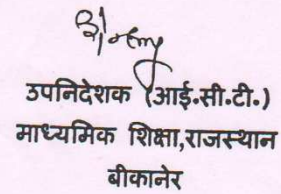 उपनिदेशक (आई.सी.टी.)
माध्यमिक शिक्षा,राजस्थान
बीकानेर